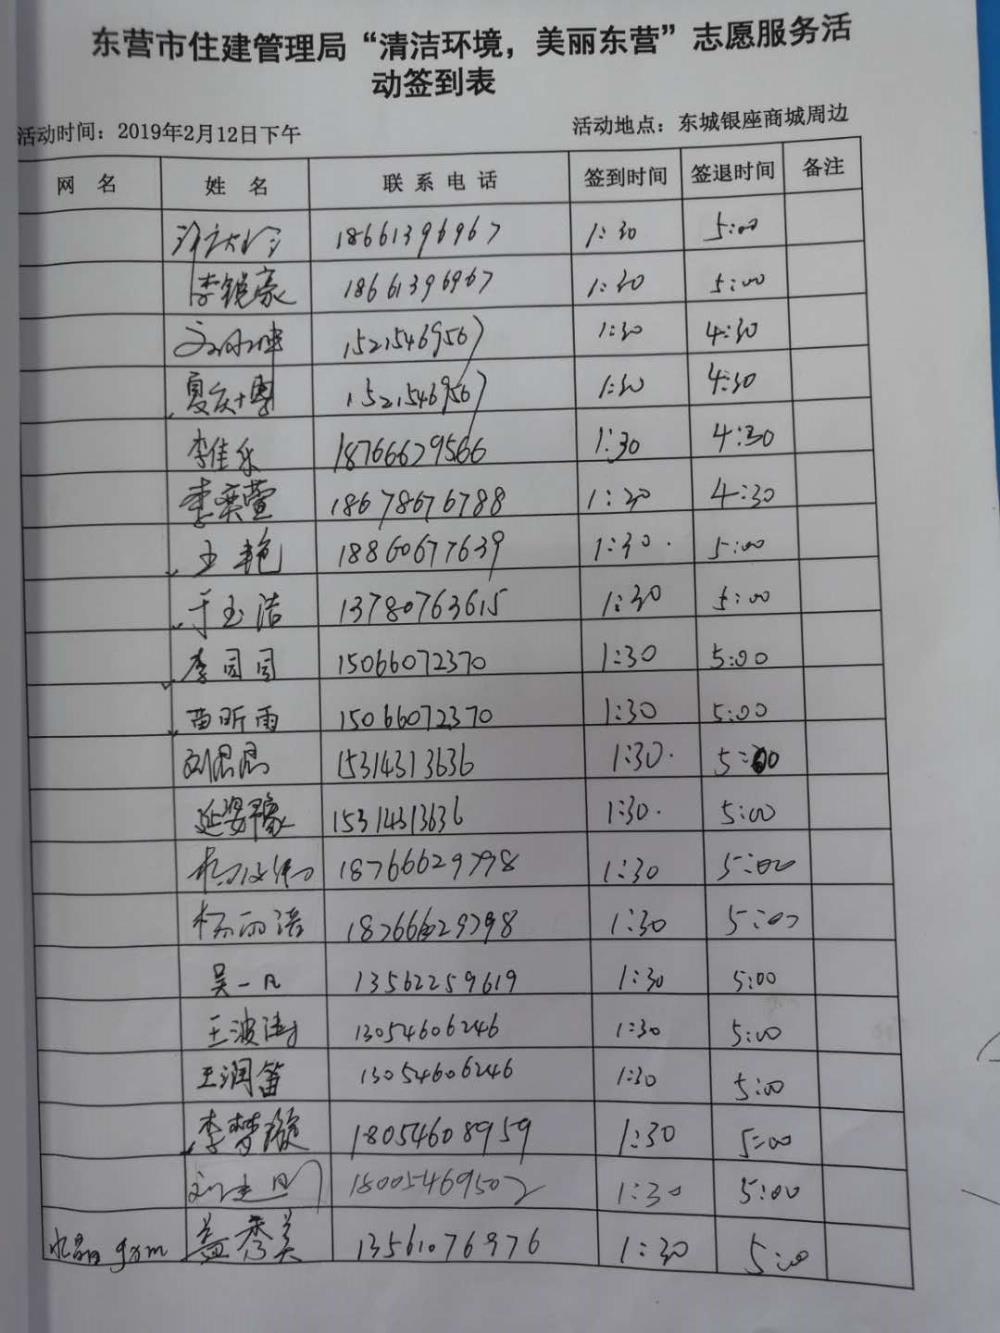 东营市住建管理局“清洁环境，美丽东营”志愿服务活
动签到表
活动时间：2019年2月12日下午 活动地点：东城银座商城周边
网 名 姓 名 联 系 电 话 签到时间 签退时间 备注
18661396967 1:30 5:00
李锐豪 18661396967 1:30 5:00
15215469567 1:30 4:30
夏庆博 15215469567 1:30 4:30
李佳乐 18766629566 1:30 4:30
李奕萱 18678676788 1:30 4:30
王艳 18860677639 1:30. 5:00
于玉洁 13780763615 1:30 5:00
李园园 15066072370 1:30 5:00
苗昕雨 15066072370 1:30 5:00
15314313636 1:30. 5:00
延姿豫 15314313636 1:30. 5:00
18766629798 1:30 5:00
杨雨洁 18766629798 1:30 5:00
吴一凡 13562259619 1:30 5:00
王波涛 13054606246 1:30 5:00
王润笛 13054606246 1:30 5:00
李梦璇 18054608959 1:30 5:00
18005469502 1:30 5:00
水晶gym 盖秀美 13561076976 1:30 5:00